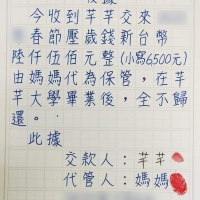 今收到芊芊交來
春節壓歲錢新台幣
陸仟伍佰元整(小寫6,500元)
由媽媽代為保管，在芊
芊大學畢業後，全不歸
還。
此據
交款人：芊芊
代管人：媽媽